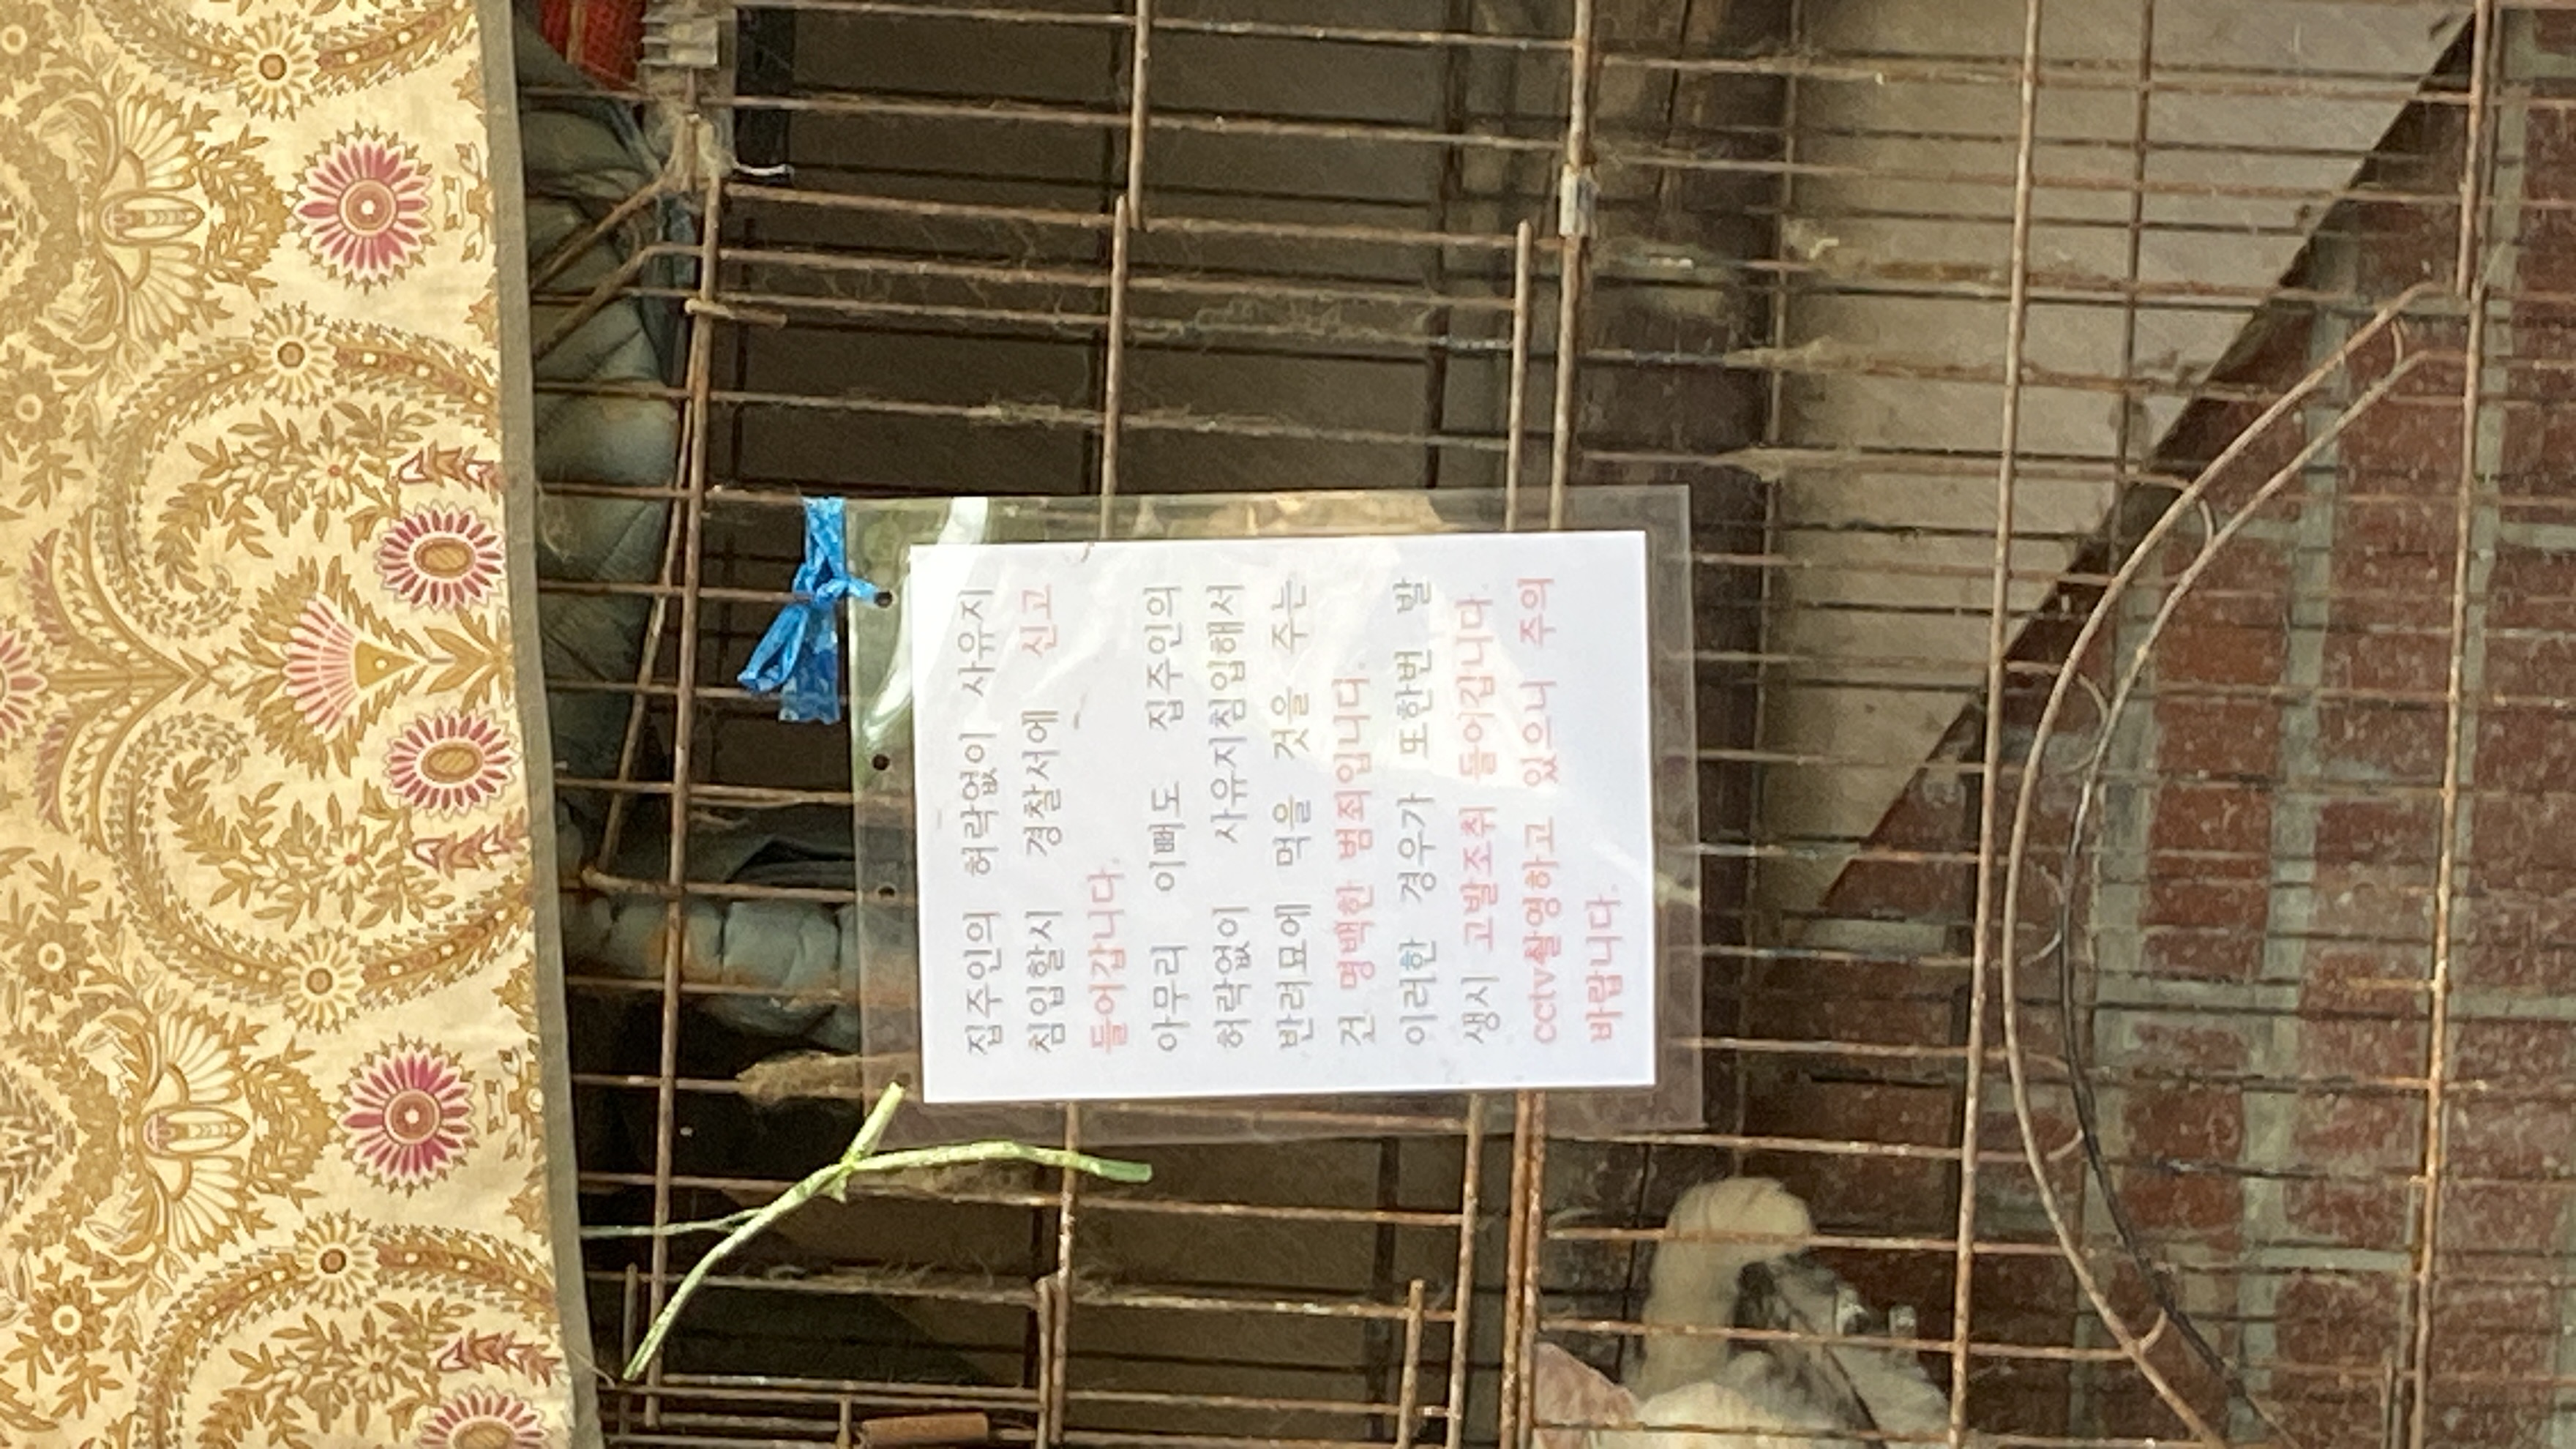 집주인의 허락없이 사유지
침입할시 경찰서에 신고
들어갑니다.
아무리 이뻐도 집주인의
허락없이 사유지침입해서
반려묘에 먹을 것을 주는
건 명백한 범죄입니다.
이러한 경우가 또한번 발
생시 고발조취 들어갑니다.
cctv촬영하고 있으니 주의
바랍니다.